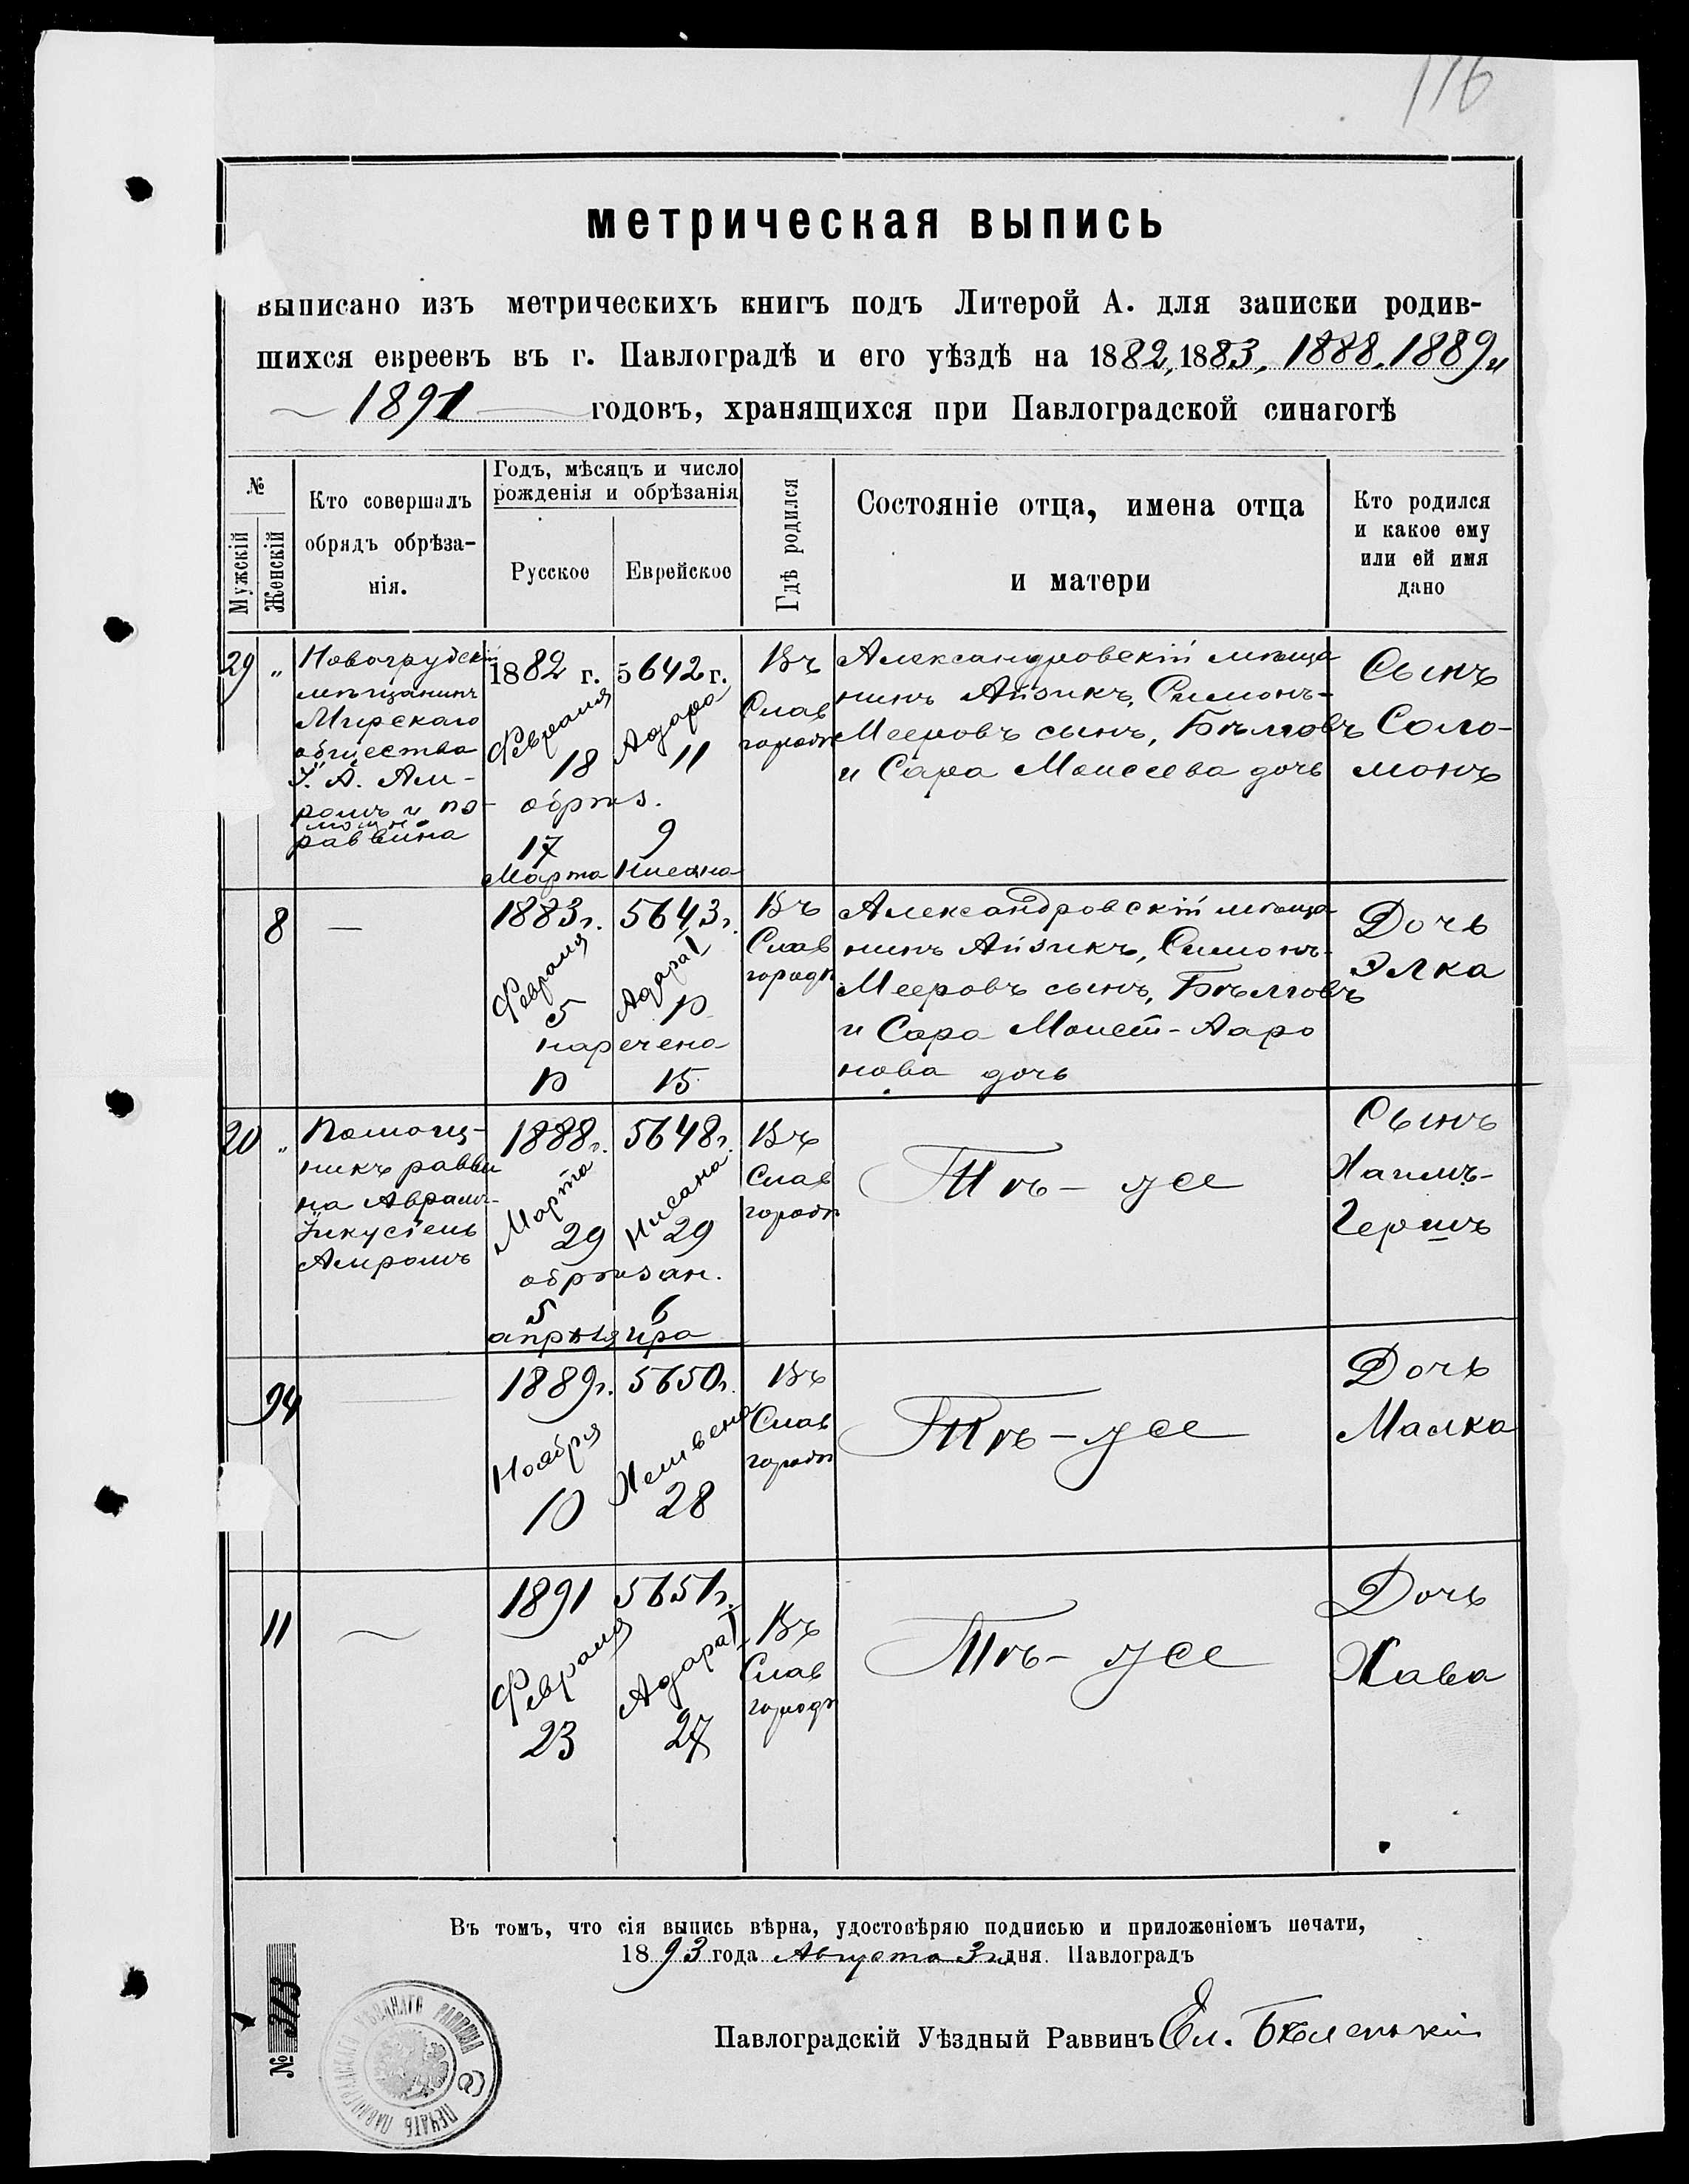 116
МЕТРИЧЕСКАЯ ВЫПИСЬ
выписано изъ метрическихъ книгъ подъ Литерой А. для записки родив-
шихся евреевъ въ г. Павлоградѣ и его уѣздѣ на 1882, 1883, 1888, 1889 и
1891 годовъ, хранящихся при Павлоградской синагогѣ
№
Мужскій
Женскій
Кто совершалъ
обрядъ обрѣза-
нія.
Годъ, мѣсяцъ и число
рожденія и обрѣзанія
Русское
Еврейское
Гдѣ родился
Состояніе отца, имена отца
и матери
Кто родился
и какое ему
или ей имя
дано
29
"
Новогрудскій
мѣщанинъ
Мирскаго
общества
І. А. Ам-
ромъ и по-
мощн.
раввина
1882 г.
Февраля
18
обрѣз.
17
Марта
5642 г.
Адара
11
9
Нисана
Въ
Слав
городѣ
Александровскій мѣща
нинъ Айзикъ, Симонъ-
Мееровъ сынъ, Бѣлговъ
и Сара Моисеева дочь
Сынъ
Соло-
монъ
8
—
1883 г.
Февраля
5
наречена
10
5643 г.
Адара I
10
15
Въ
Слав
городѣ
Александровскій мѣща
нинъ Айзикъ, Симонъ-
Мееровъ сынъ, Бѣлговъ
и Сара Моисей-Ааро
нова дочь
Дочь
Элка
20
"
Помощ-
никъ равви
на Аврамъ-
Іикусіель
Амромъ
1888 г.
Марта
29
обрѣзан.
5
апрѣля
5648 г.
Нисана
29
6
ира
Въ
Слав
городѣ
Тѣ-же
Сынъ
Хаимъ-
Гершъ
94
1889 г.
Ноября
10
5650 г.
Хешвена
28
Въ
Слав
городѣ
Тѣ-же
Дочь
Малка
11
1891
Февраля
23
5651 г.
Адара I
27
Въ
Слав
городѣ
Тѣ-же
Дочь
Хава
Въ томъ, что сія выпись вѣрна, удостовѣряю подписью и приложеніемъ печати,
1893 года Августа 3 дня. Павлоградъ
№ 313
Павлоградскій Уѣздный Раввинъ Ел. Бѣленькій
ПЕЧАТЬ ПАВЛОГРАДСКАГО УѢЗДНАГО РАВВИНА